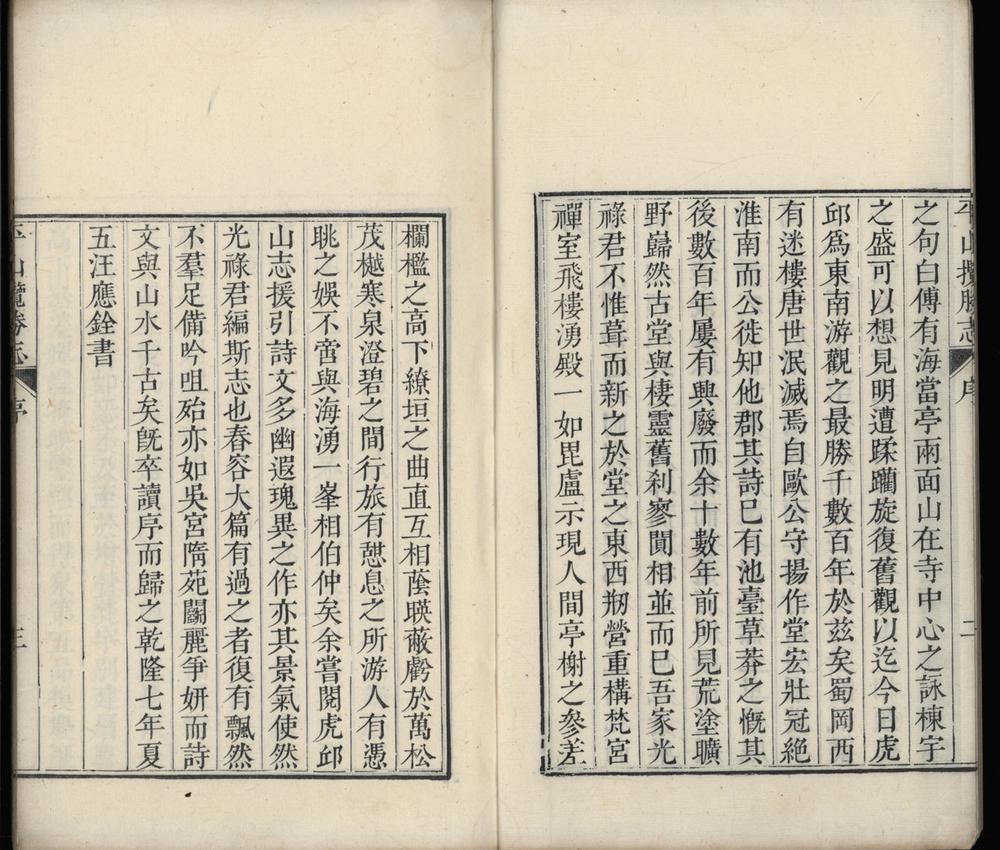 平山攬勝志 序 二
之句白傅有海當亭兩面山在寺中心之詠棟宇
之盛可以想見明遭蹂躪旋復舊觀以迄今日虎
邱爲東南游觀之最勝千數百年於茲矣蜀岡西
有迷樓唐世泯滅焉自歐公守揚作堂宏壯冠絶
淮南而公徙知他郡其詩已有池臺草莽之慨其
後數百年屢有興廢而余十數年前所見荒塗曠
野巋然古堂與棲靈舊刹寥闃相並而已吾家光
祿君不惟葺而新之於堂之東西剏營重構梵宮
禪室飛樓湧殿一如毘盧示現人間亭榭之參差
欄檻之高下繚垣之曲直互相蔭暎蔽虧於萬松
茂樾寒泉澄碧之間行旅有憇息之所游人有憑
眺之娛不啻與海湧一峯相伯仲矣余嘗閱虎邱
山志援引詩文多幽遐瑰異之作亦其景氣使然
光祿君編斯志也舂容大篇有過之者復有飄然
不羣足備吟咀殆亦如吳宮隋苑鬭麗爭妍而詩
文與山水千古矣旣卒讀序而歸之乾隆七年夏
五汪應銓書
平山攬勝志 序 三